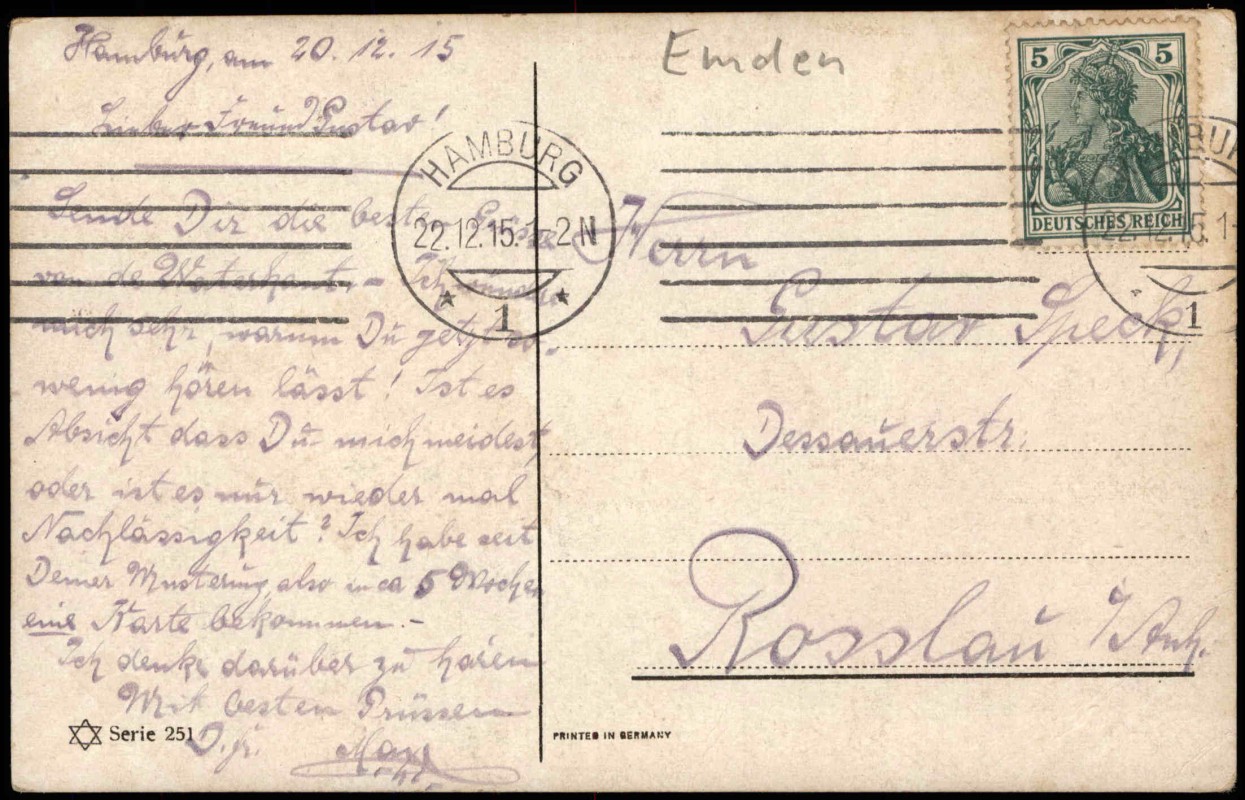 Hamburg, am 20.12.15
Lieber Freund Gustav!
Sende Dir die besten Grüsse
von de Waterkant. - Ich wundre
mich sehr, warum Du jetzt so
wenig hören lässt! Ist es
Absicht dass Du mich meidest,
oder ist es nur wieder mal
Nachlässigkeit? Ich habe seit
Deiner Musterung, also in ca 5 Wochen
eine Karte bekommen. -
Ich denke darüber zu hören
Mit besten Grüssen
D. Fr.
Serie 251
Emden
5 5
DEUTSCHES REICH
HAMBURG
22.12.15. 2 N
1
BUR
22.12.15. 1-
1
Herrn
Gustav Speck,
Dessauerstr.
Rosslau i/Anh.
PRINTED IN GERMANY